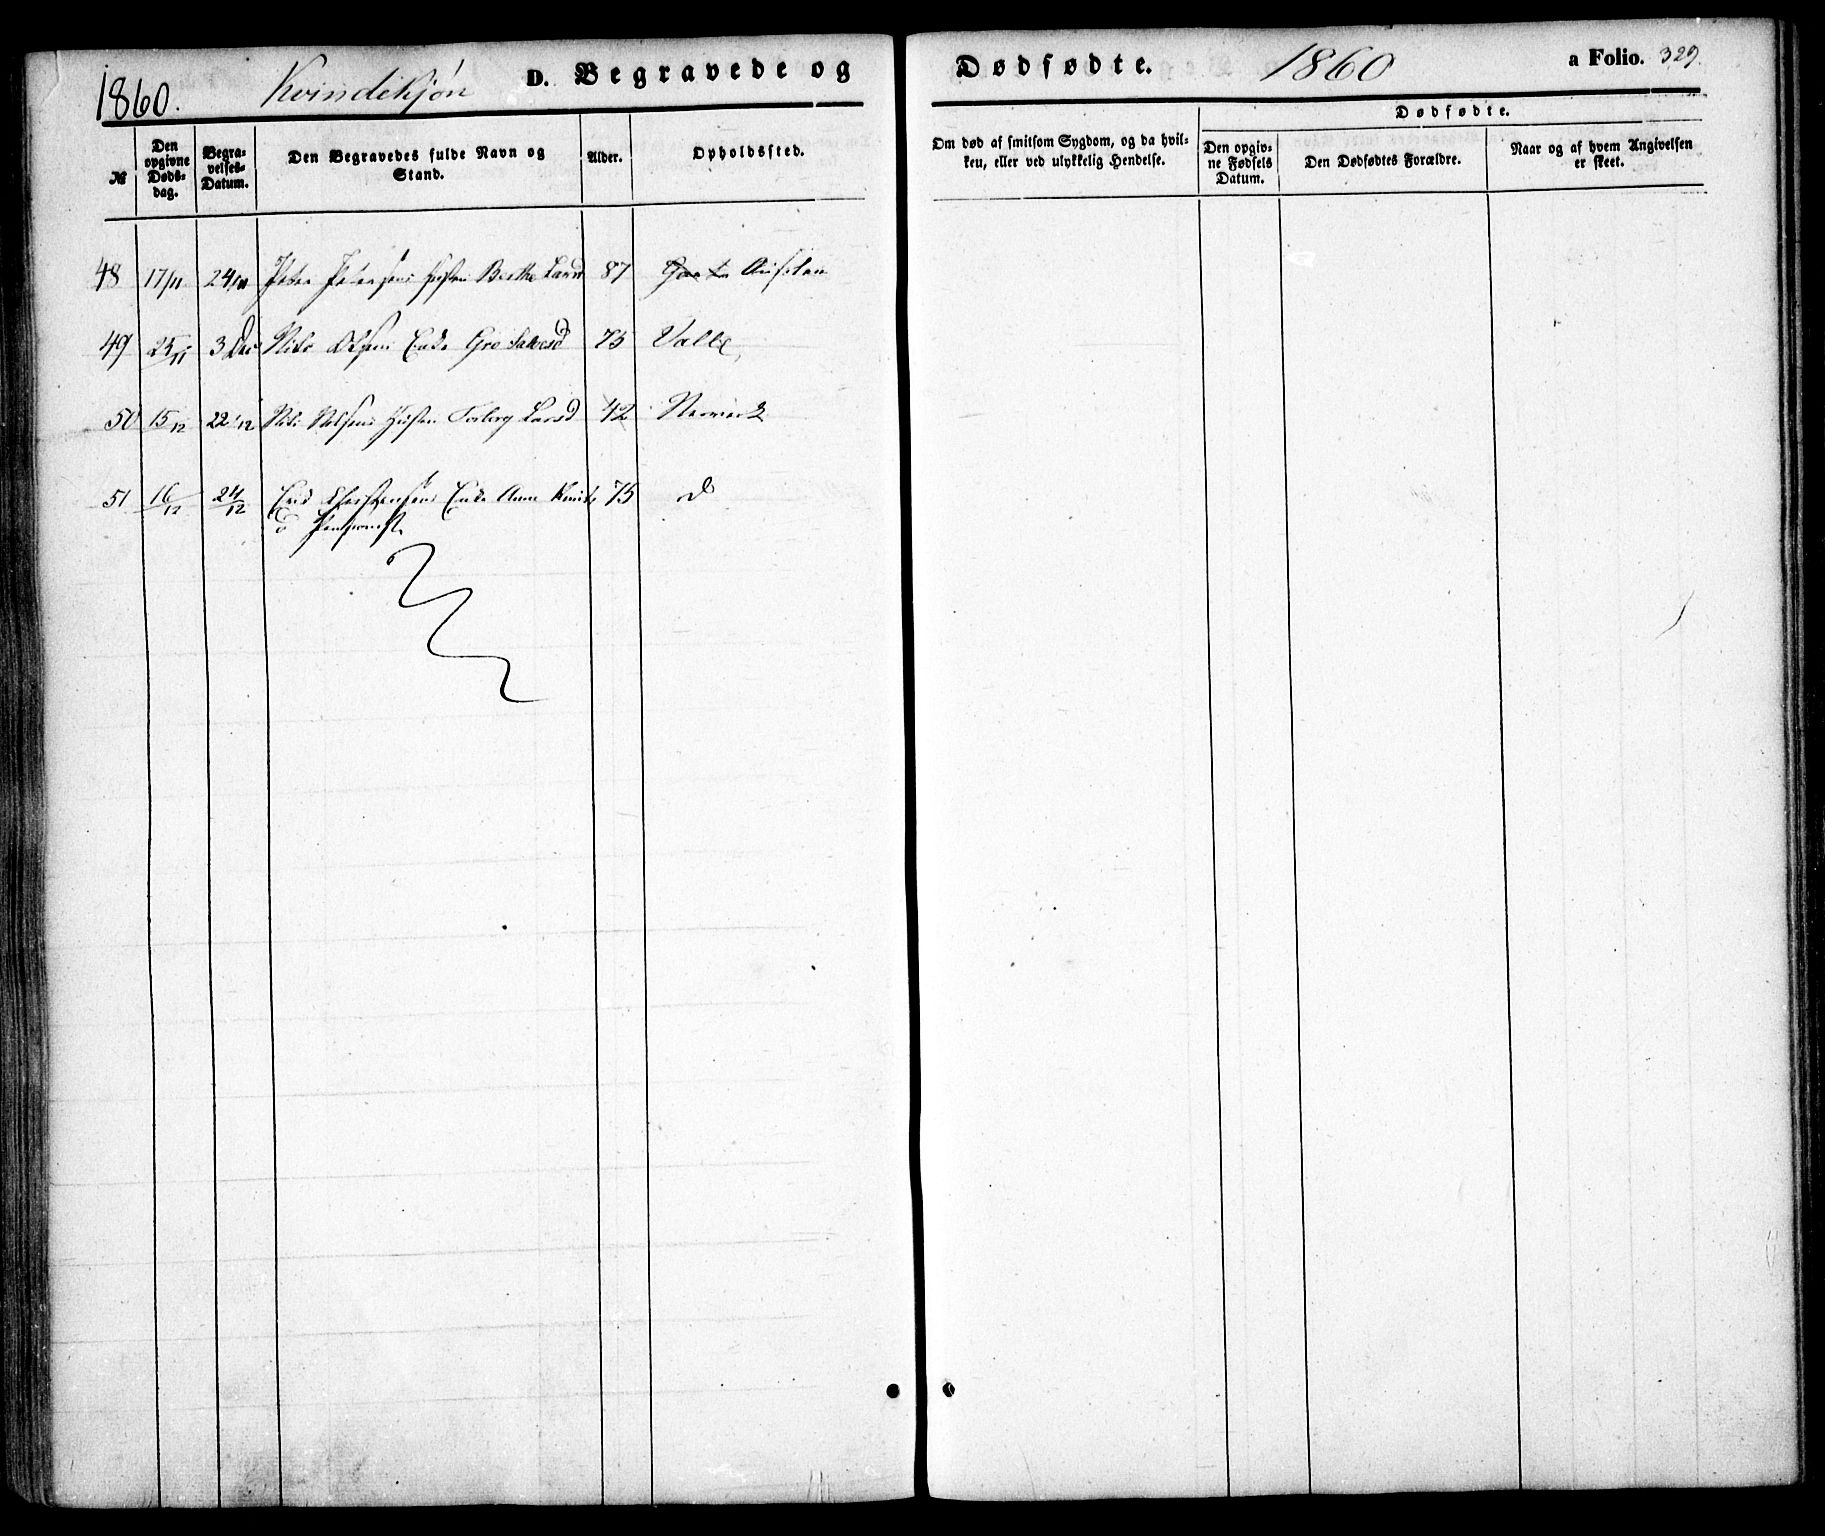 1860. Kvindekjøn D. Begravede og Dødfødte. 1860 a Folio. 329.
№
Den opgivne Døds-dag.
Begra-velses-Datum.
Den Begravedes fulde Navn og Stand.
Alder.
Opholdssted.
Om død af smitsom Sygdom, og da hvil-
ken, eller ved ulykkelig Hendelse.
Dødfødte.
Den opgiv-ne Fødsels Datum.
Den Dødfødtes Forældre.
Naar og af hvem Angivelsen er skeet.
48 17/11 24/11 Peder Pedersens Hustru Berthe Larsd 87
49 25/11 3 Dec Nils Olsens Enke Gro Salvesd 75 Valle
50 15/12 22/12 Nils Nilsens Hustru Torborg Larsd 42
51 16/12 24/12 Christensens Enke Anne Knuts 75 d
d